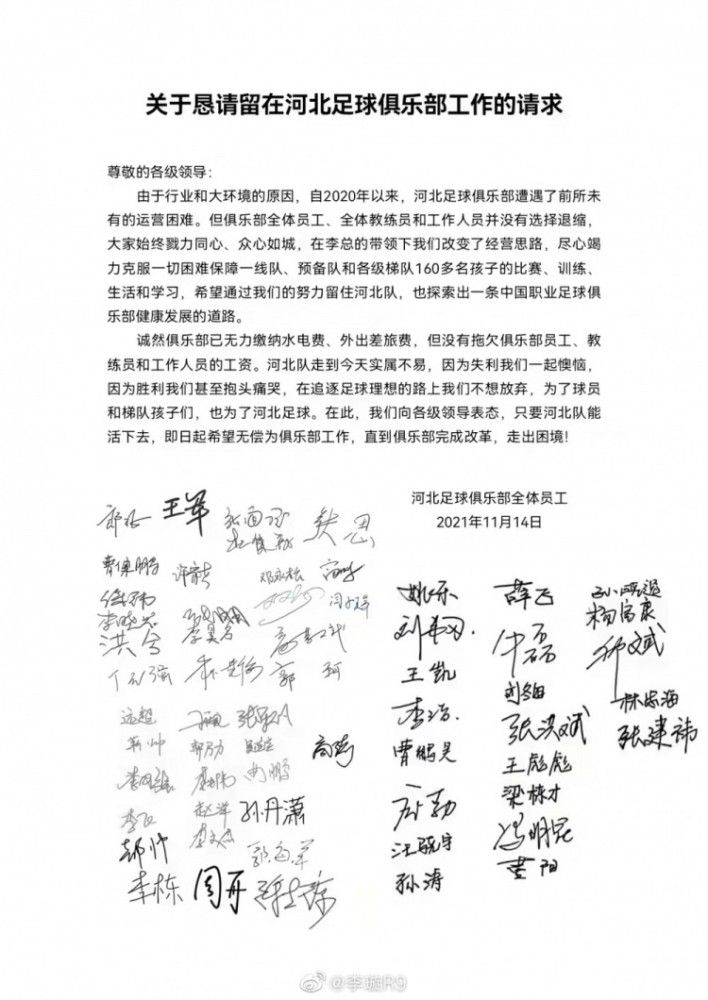 关于恳请留在河北足球俱乐部工作的请求
尊敬的各级领导：
由于行业和大环境的原因，自2020年以来，河北足球俱乐部遭遇了前所未
有的运营困难。但俱乐部全体员工、全体教练员和工作人员并没有选择退缩，
大家始终戮力同心、众心如城，在李总的带领下我们改变了经营思路，尽心竭
力克服一切困难保障一线队、预备队和各级梯队160多名孩子的比赛、训练、
生活和学习，希望通过我们的努力留住河北队，也探索出一条中国职业足球俱
乐部健康发展的道路。
诚然俱乐部已无力缴纳水电费、外出差旅费，但没有拖欠俱乐部员工、教
练员和工作人员的工资。河北队走到今天实属不易，因为失利我们一起懊恼，
因为胜利我们甚至抱头痛哭，在追逐足球理想的路上我们不想放弃，为了球员
和梯队孩子们，也为了河北足球。在此，我们向各级领导表态，只要河北队能
活下去，即日起希望无偿为俱乐部工作，直到俱乐部完成改革，走出困境！
河北足球俱乐部全体员工
2021年11月14日
王军
姚乐
薛飞
杨富康
洪兮
王凯
郭珂
林忠海
远超
李浩
张洪斌
张建祎
曹鹏昊
王彪彪
梁栋才
赵洋
孙丹潇
冯明昆
郝帅
孙涛
黄阳
李栋
周开
@李璇R9